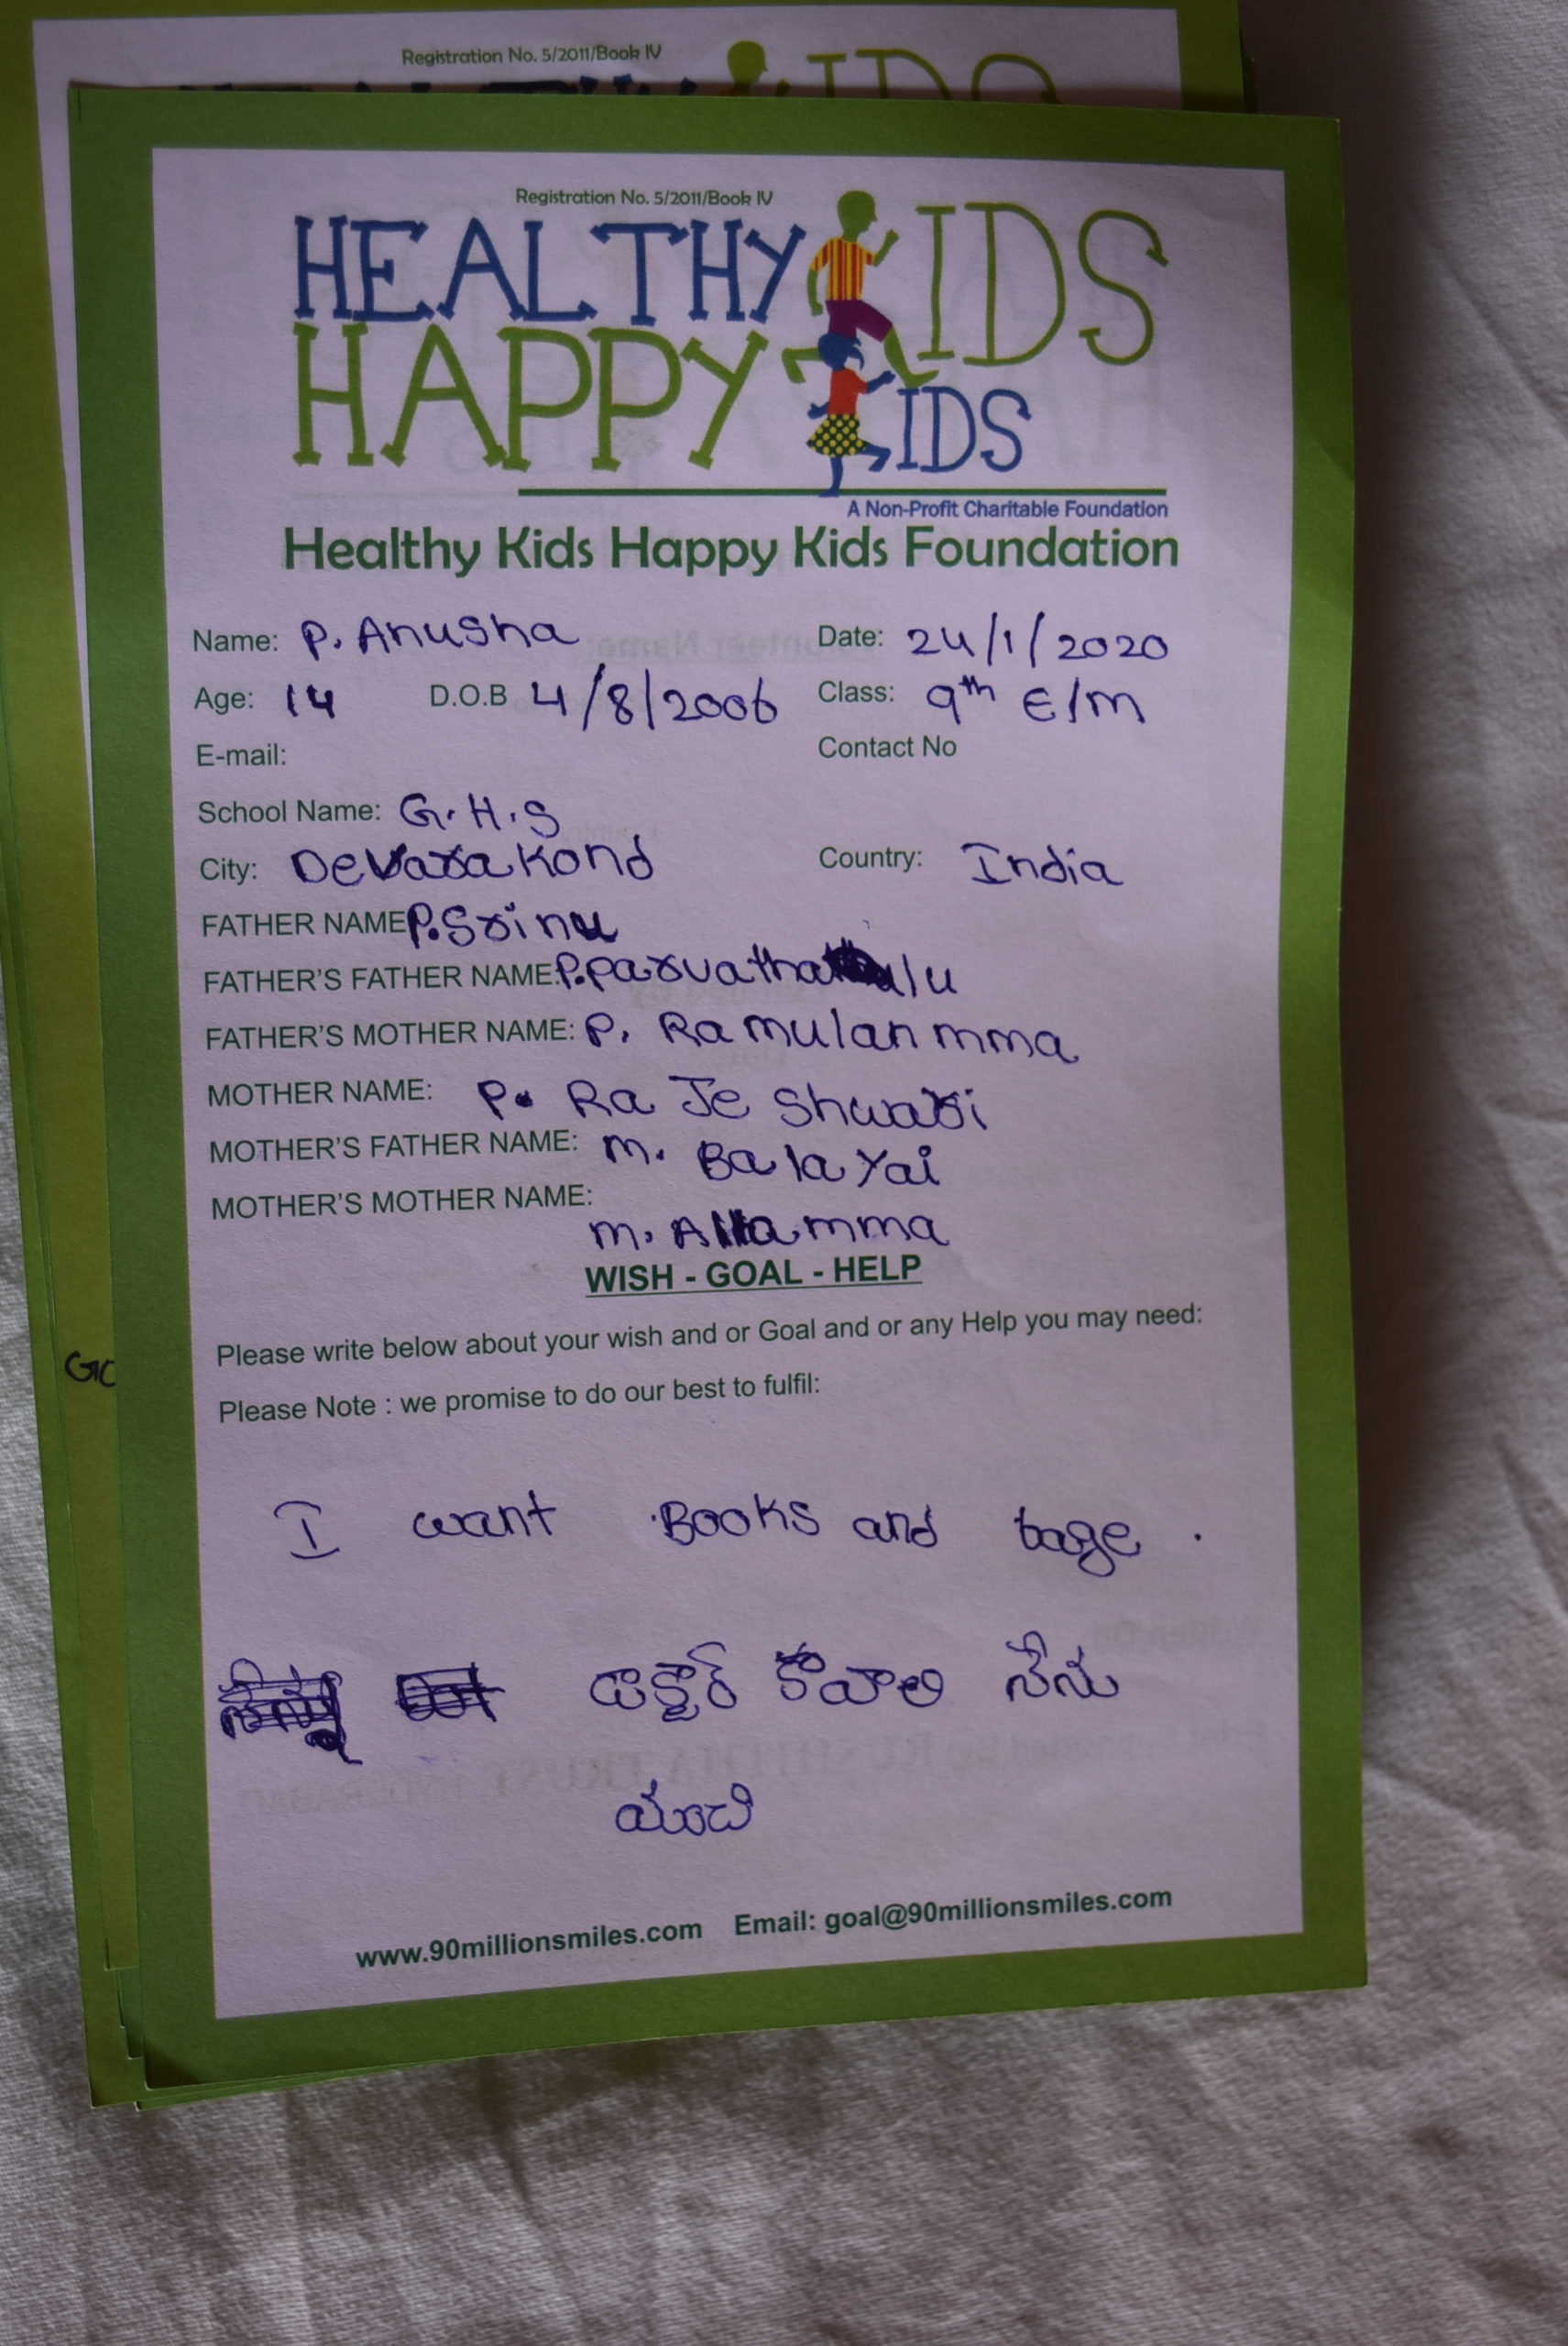 Registration No. 5/2011/Book IV
Registration No. 5/2011/Book IV
HEALTHY KIDS
HAPPY KIDS
A Non-Profit Charitable Foundation
Healthy Kids Happy Kids Foundation
Name: P. Anusha Date: 24/1/2020
Age: 14 D.O.B 4/8/2006 Class: 9th E/M
E-mail: Contact No
School Name: G.H.S
City: Devarakond Country: India
FATHER NAME P.Srinu
FATHER'S FATHER NAME: P.parvatha lu
FATHER'S MOTHER NAME: P. Ramulanmma
MOTHER NAME: P. Ra Je Shwari
MOTHER'S FATHER NAME: m. Balayai
MOTHER'S MOTHER NAME:
m. Allamma
WISH - GOAL - HELP
Please write below about your wish and or Goal and or any Help you may need:
Please Note : we promise to do our best to fulfil:
I want Books and bage .
డాక్టార్ కావాలి నేను
www.90millionsmiles.com Email: goal@90millionsmiles.com